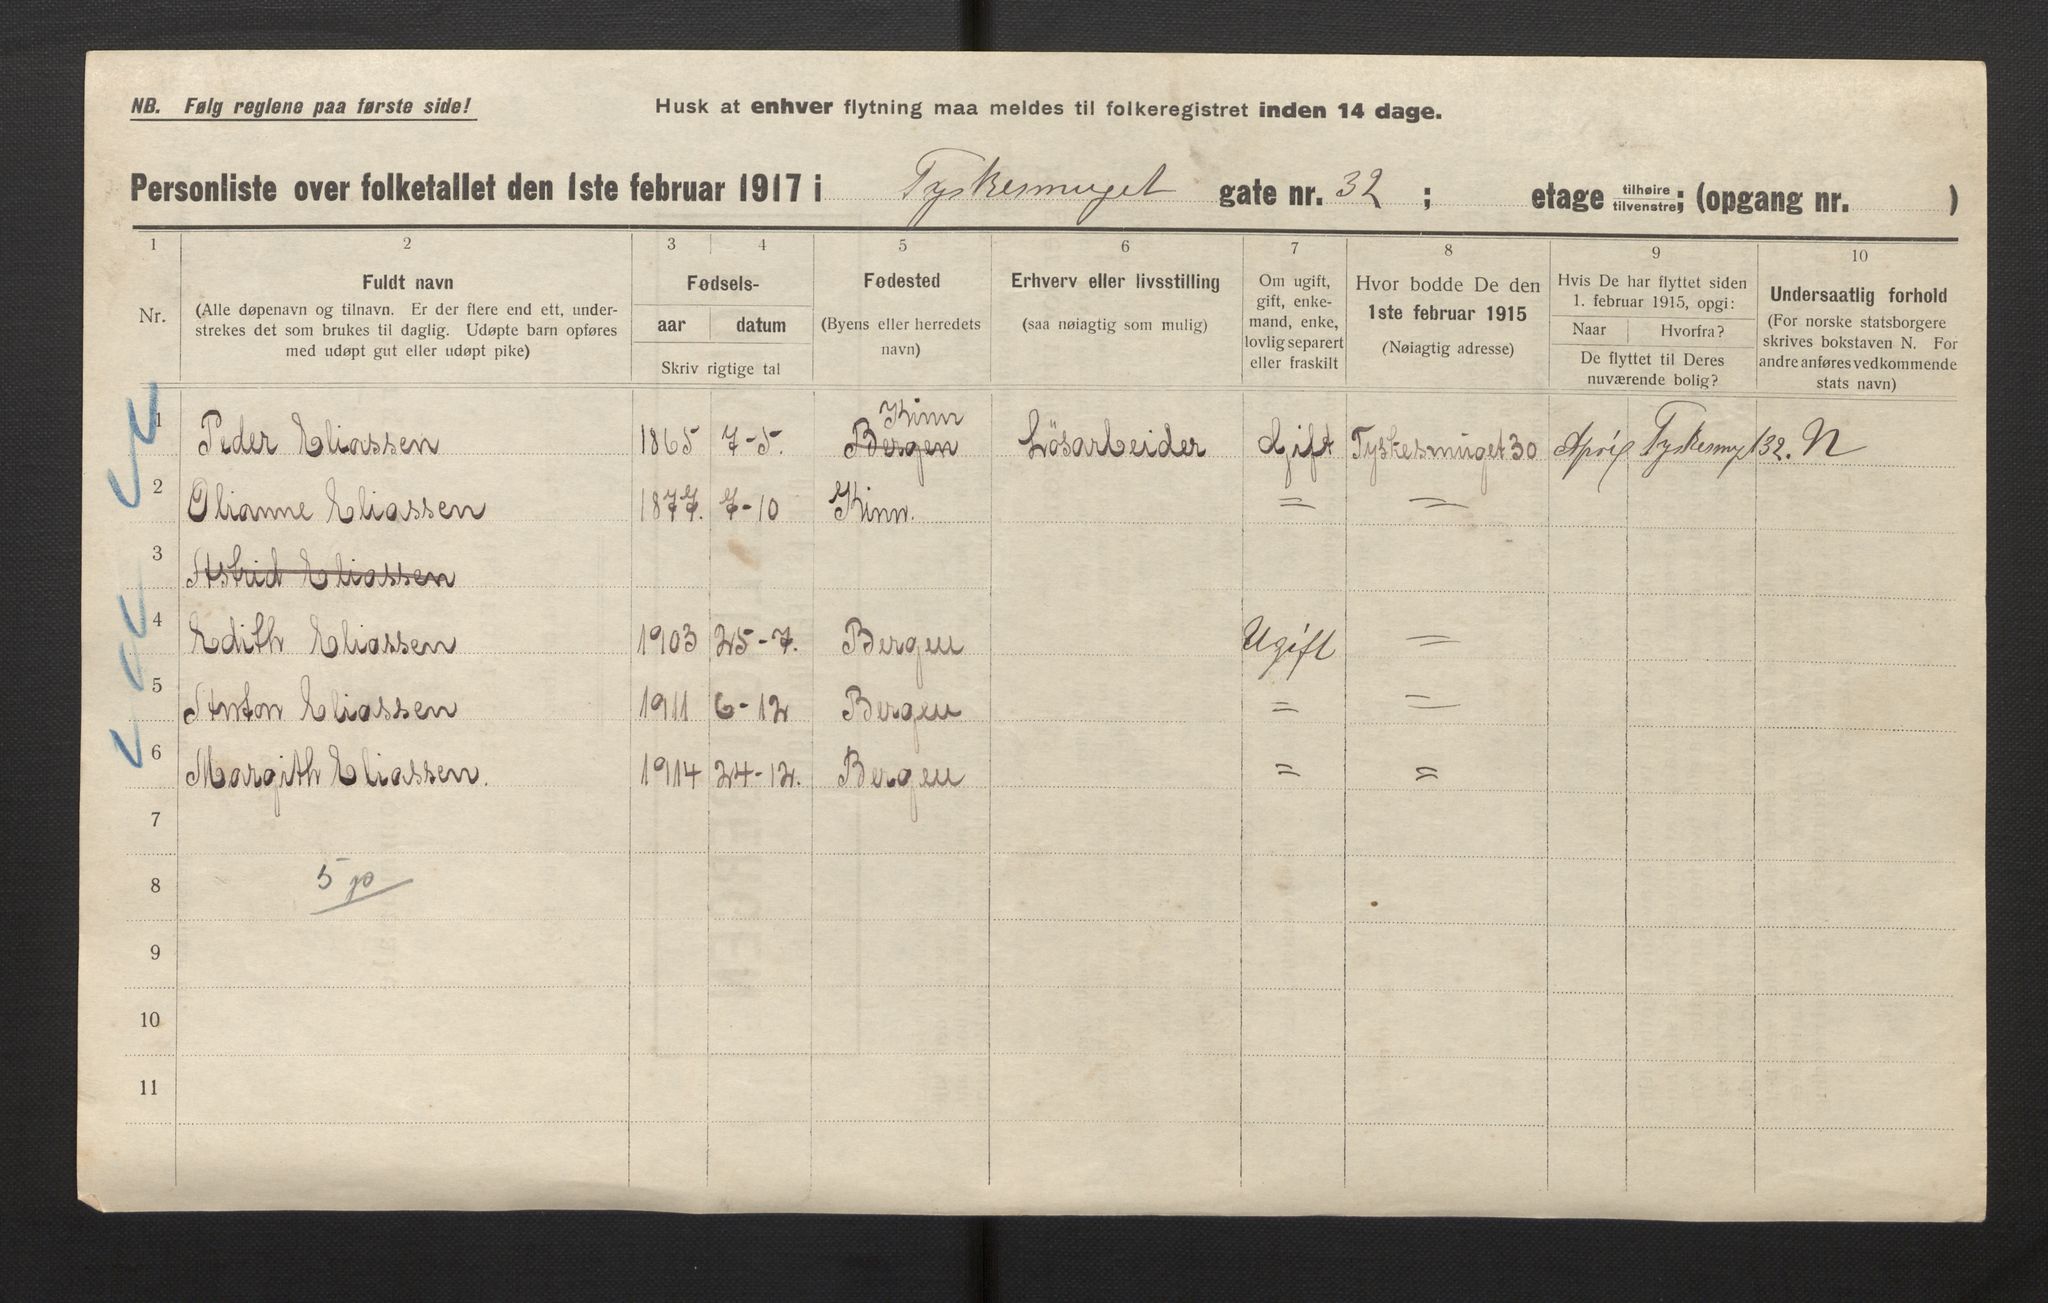 NB. Følg reglene paa første side! Husk at enhver flytning maa meldes til folkeregistret inden 14 dage.
Personliste over folketallet den 1ste februar 1917 i Tyskesmuget gate nr. 32 ; etage tilhøire tilvenstre; (opgang nr. )
1 2 3 4 5 6 7 8 9 10
Nr.
Fuldt navn
(Alle døpenavn og tilnavn. Er der flere end ett, under-
strekes det som brukes til daglig. Udøpte barn opføres
med udøpt gut eller udøpt pike)
Fødsels-
aar datum
Skriv rigtige tal
Fødested
(Byens eller herredets
navn)
Erhverv eller livsstilling
(saa nøiagtig som mulig)
Om ugift,
gift, enke-
mand, enke,
lovlig separert
eller fraskilt
Hvor bodde De den
1ste februar 1915
(Nøiagtig adresse)
Hvis De har flyttet siden
1. februar 1915, opgi:
Naar Hvorfra?
De flyttet til Deres
nuværende bolig?
Undersaatlig forhold
(For norske statsborgere
skrives bokstaven N. For
andre anføres vedkommende
stats navn)
Kinn
1 Peder Eliassen 1865 7-5. Bergen Lösarbeider Gift Tyskesmuget 30 32. N
2 Olianne Eliassen 1877. 7-10 Kinn. = =
3 Astrid Eliassen
4 Edith Eliassen 1903 25-7. Bergen Ugift =
5 Anton Eliassen 1911 6-12 Bergen = =
6 Margith Eliassen. 1914 24-12. Bergen = =
7
5 p
8
9
10
11